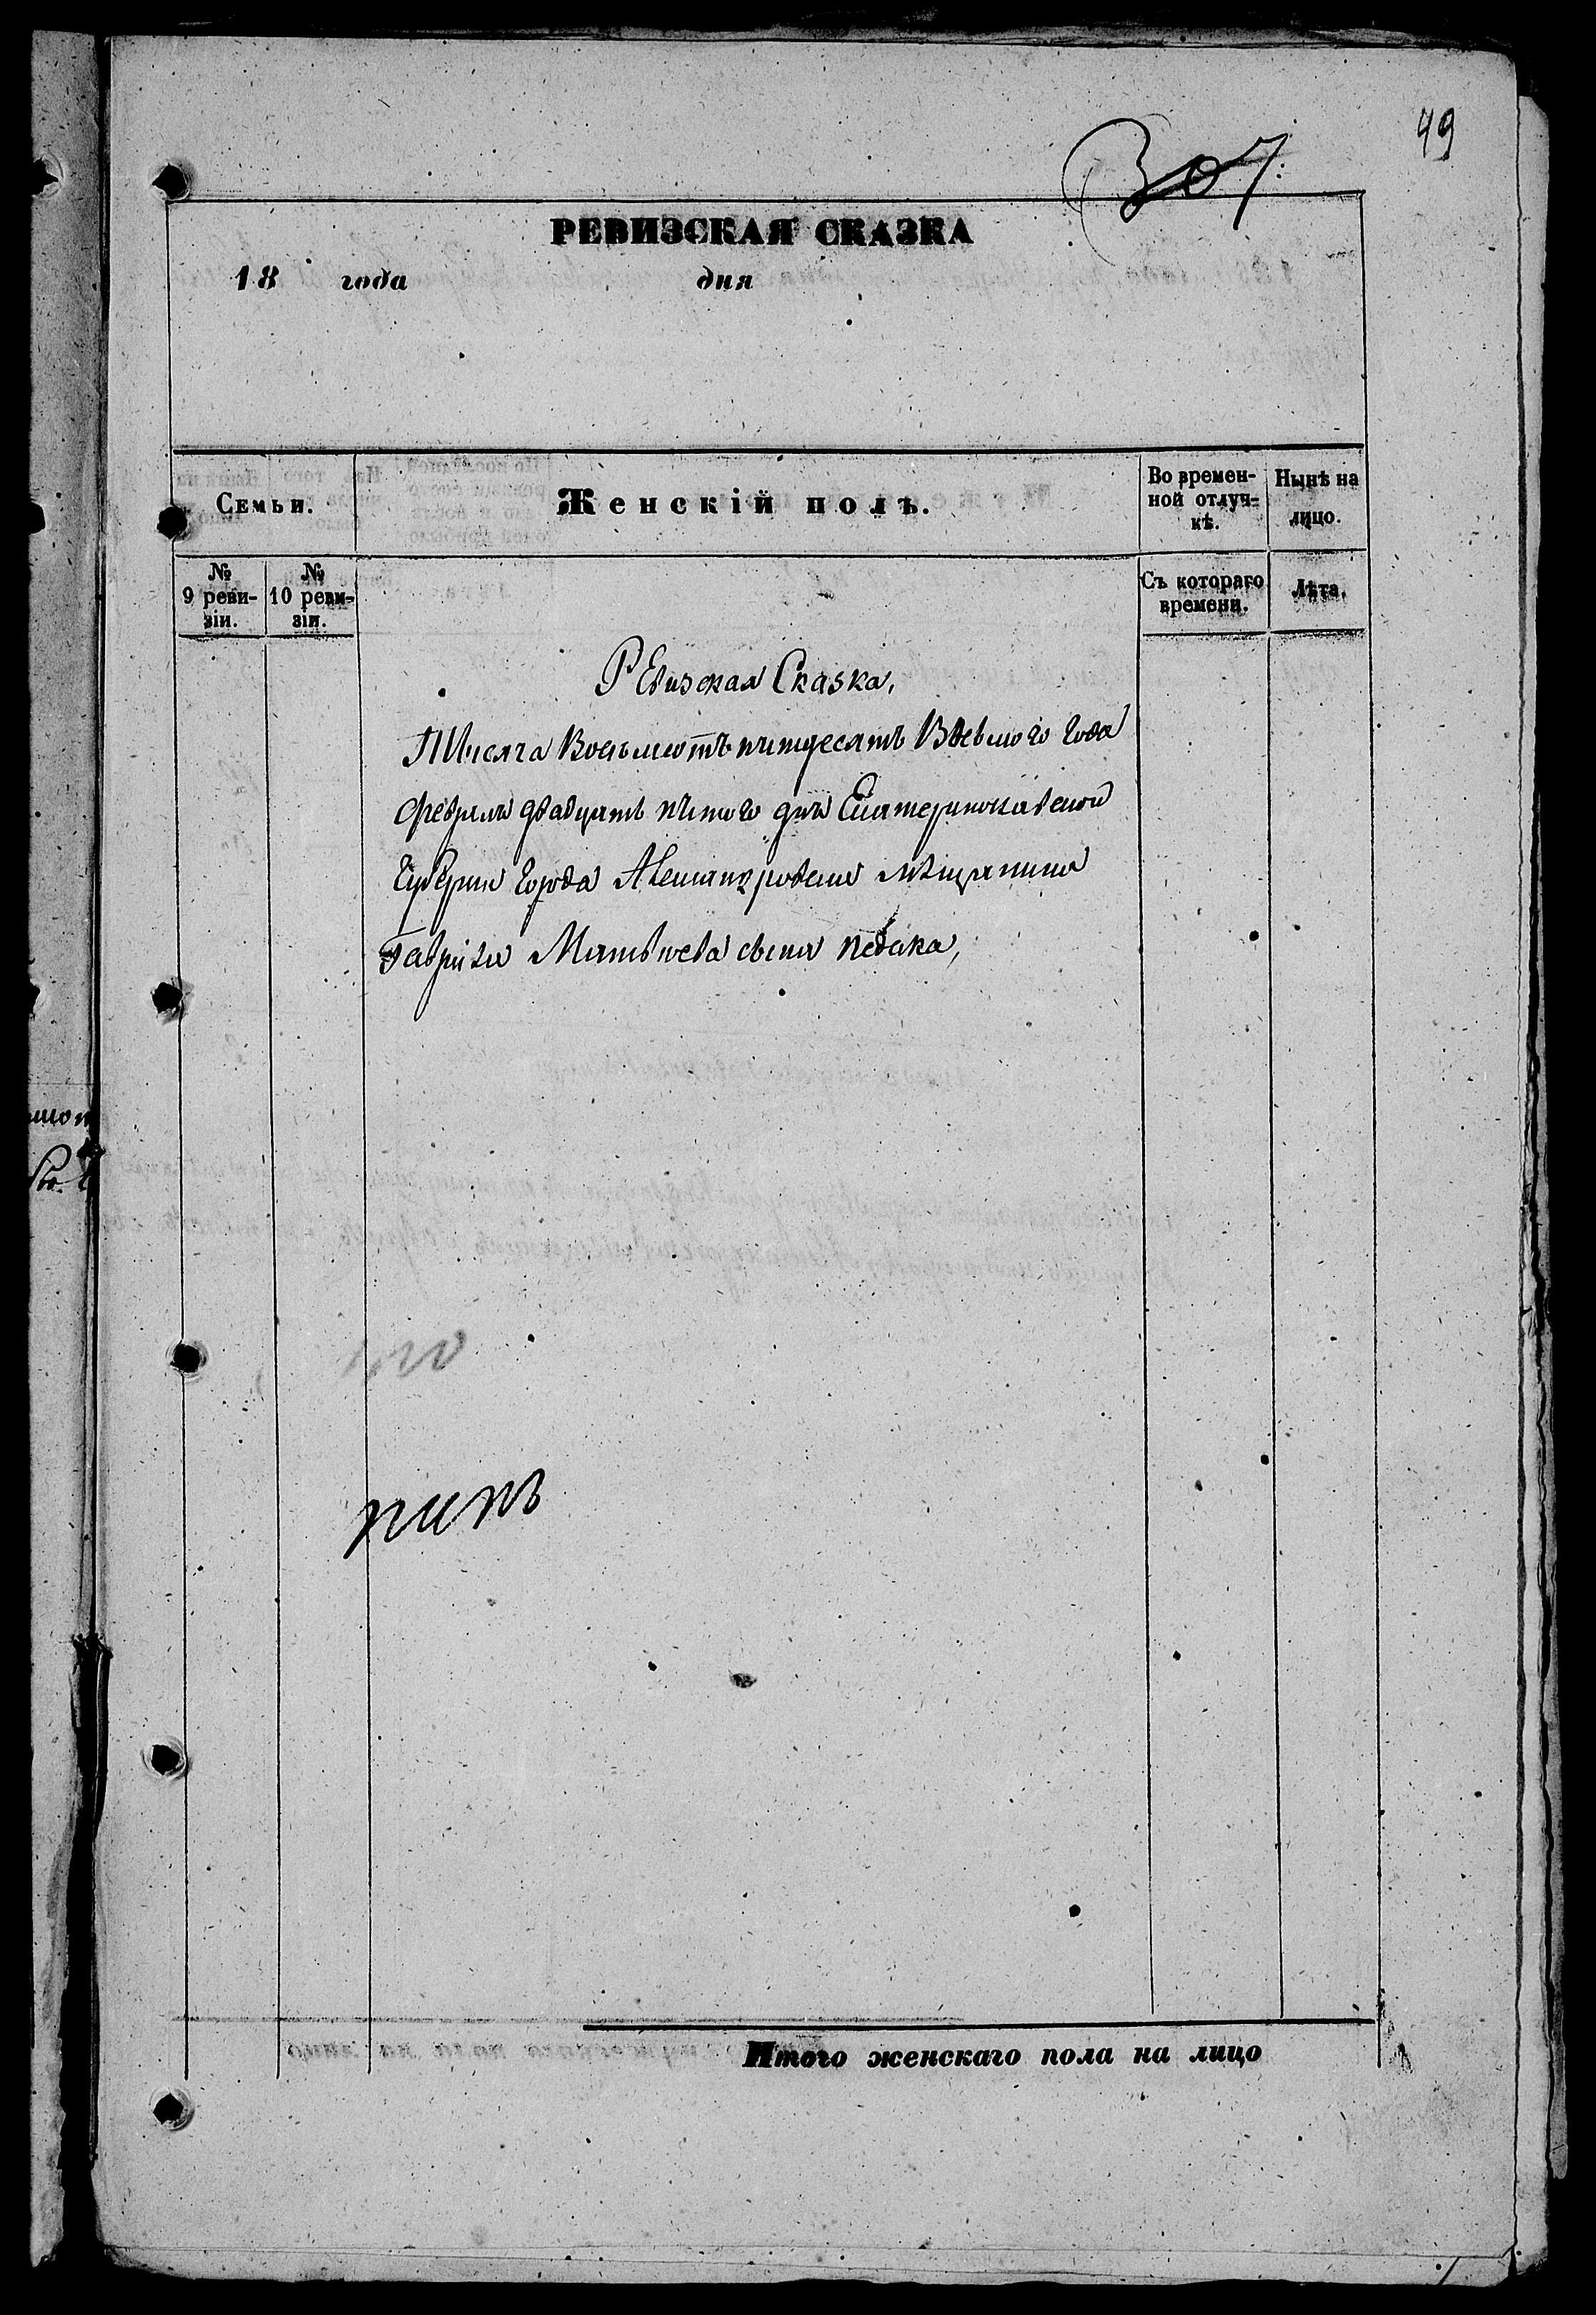 49
307.
РЕВИЗСКАЯ СКАЗКА
18 года дня
Семьи.
Женскій полъ.
Во времен-
ной отлуч-
кѣ.
Нынѣ на
лицо.
№
9 реви-
зіи.
№
10 реви-
зіи.
Съ котораго
времени.
Лѣта.
Ревизская Сказка,
Тысяча Восьмсотъ пятдесятъ Восьмого года
февраля двадцать пятого дня Екатеринославской
Губернии Города Александровска мѣщанина
Гаврила Матвѣева сына
Итого женскаго пола на лицо